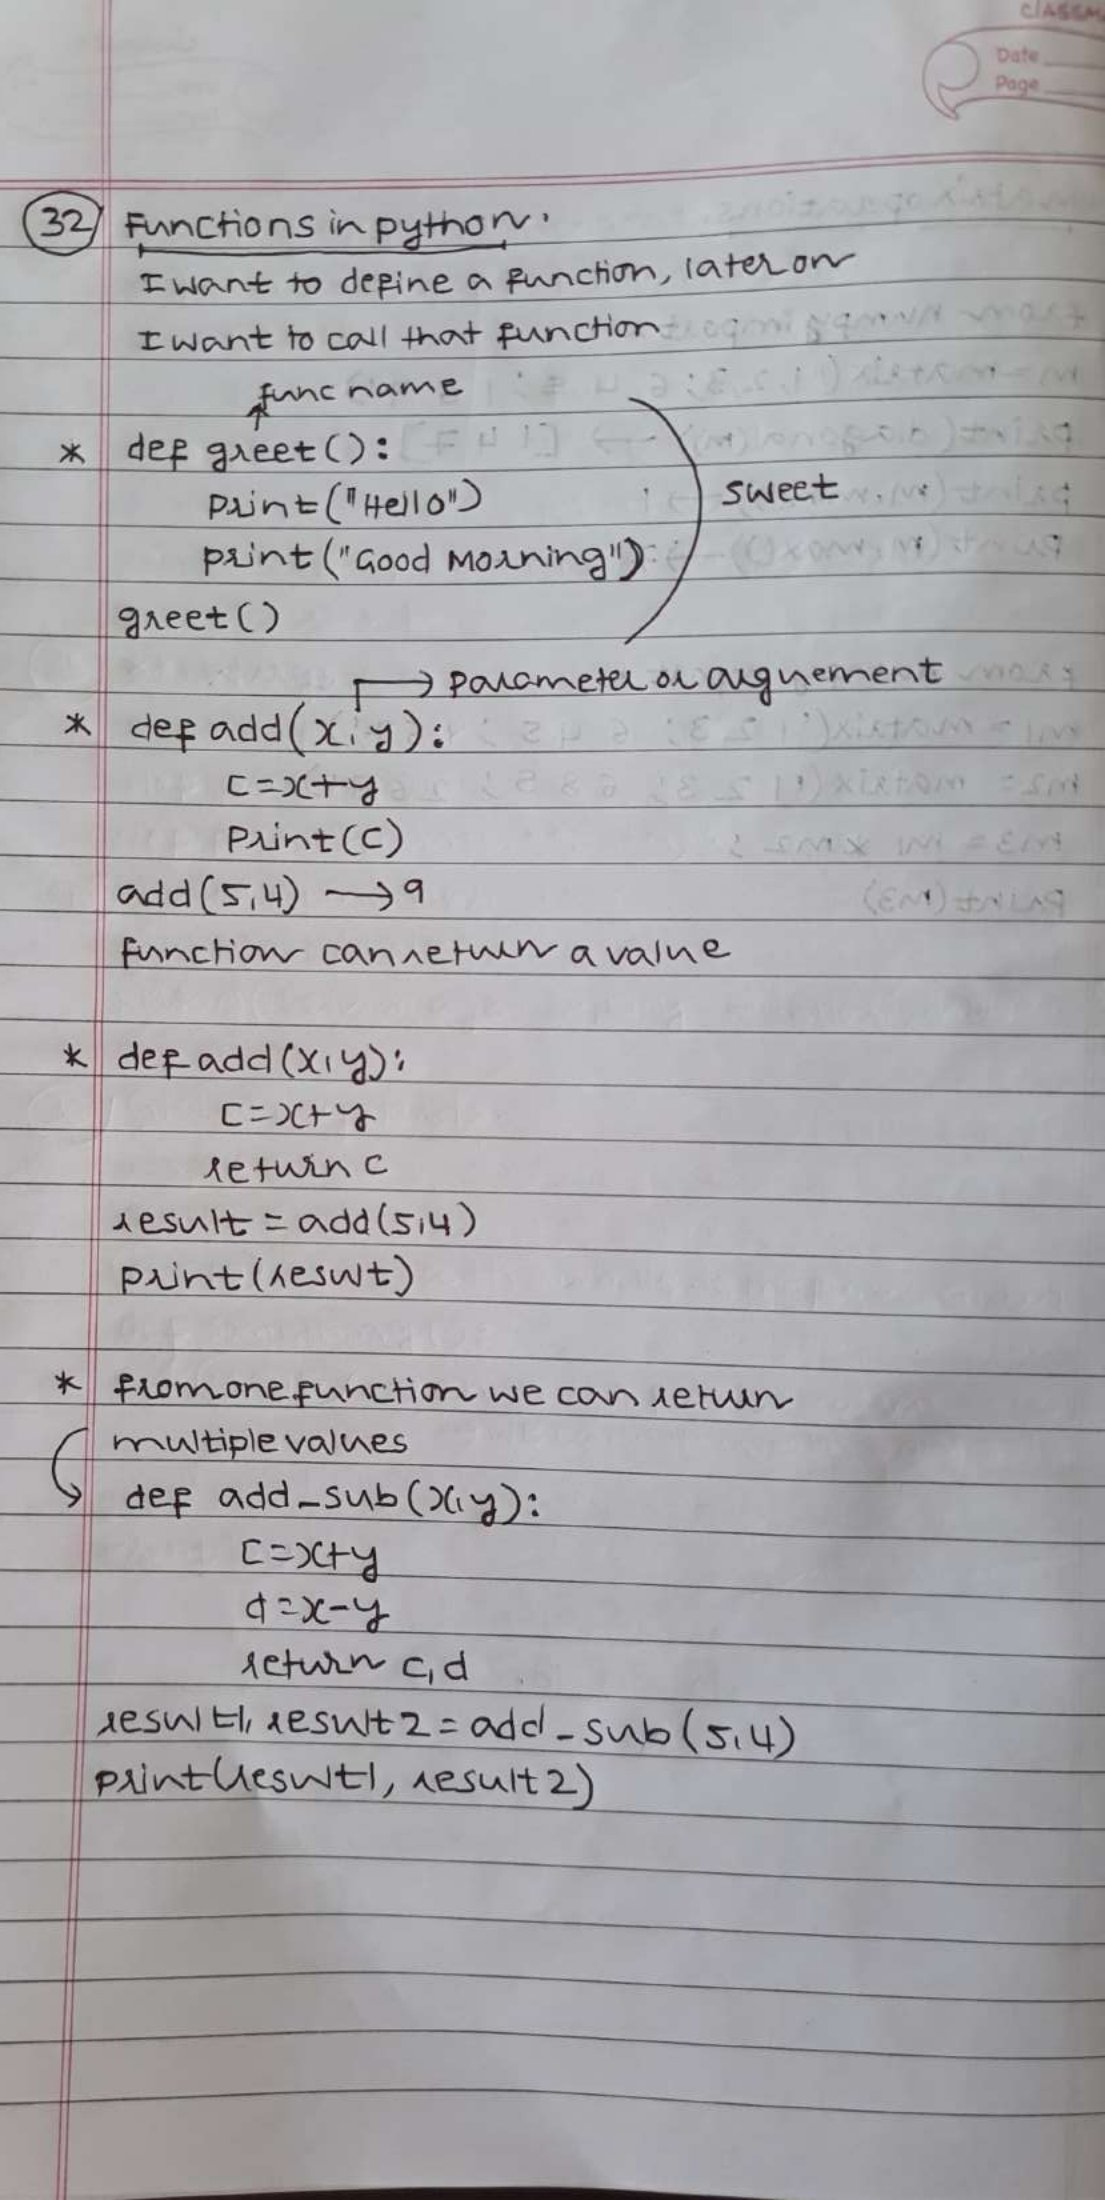 classm
Date
Page
32 Functions in python.
I want to define a function, later on
I want to call that function
func name
* def greet():
print("Hello")
print("Good Morning")
sweet
greet()
parameter or arguement
* def add(x,y):
c=x+y
Print(c)
add(5,4) → 9
function can return a value
* def add(x,y):
c=x+y
return c
result = add(5,4)
print(result)
* from one function we can return
multiple values
def add_sub(x,y):
c=x+y
d=x-y
return c,d
result1, result2 = add_sub(5,4)
print(result1, result2)